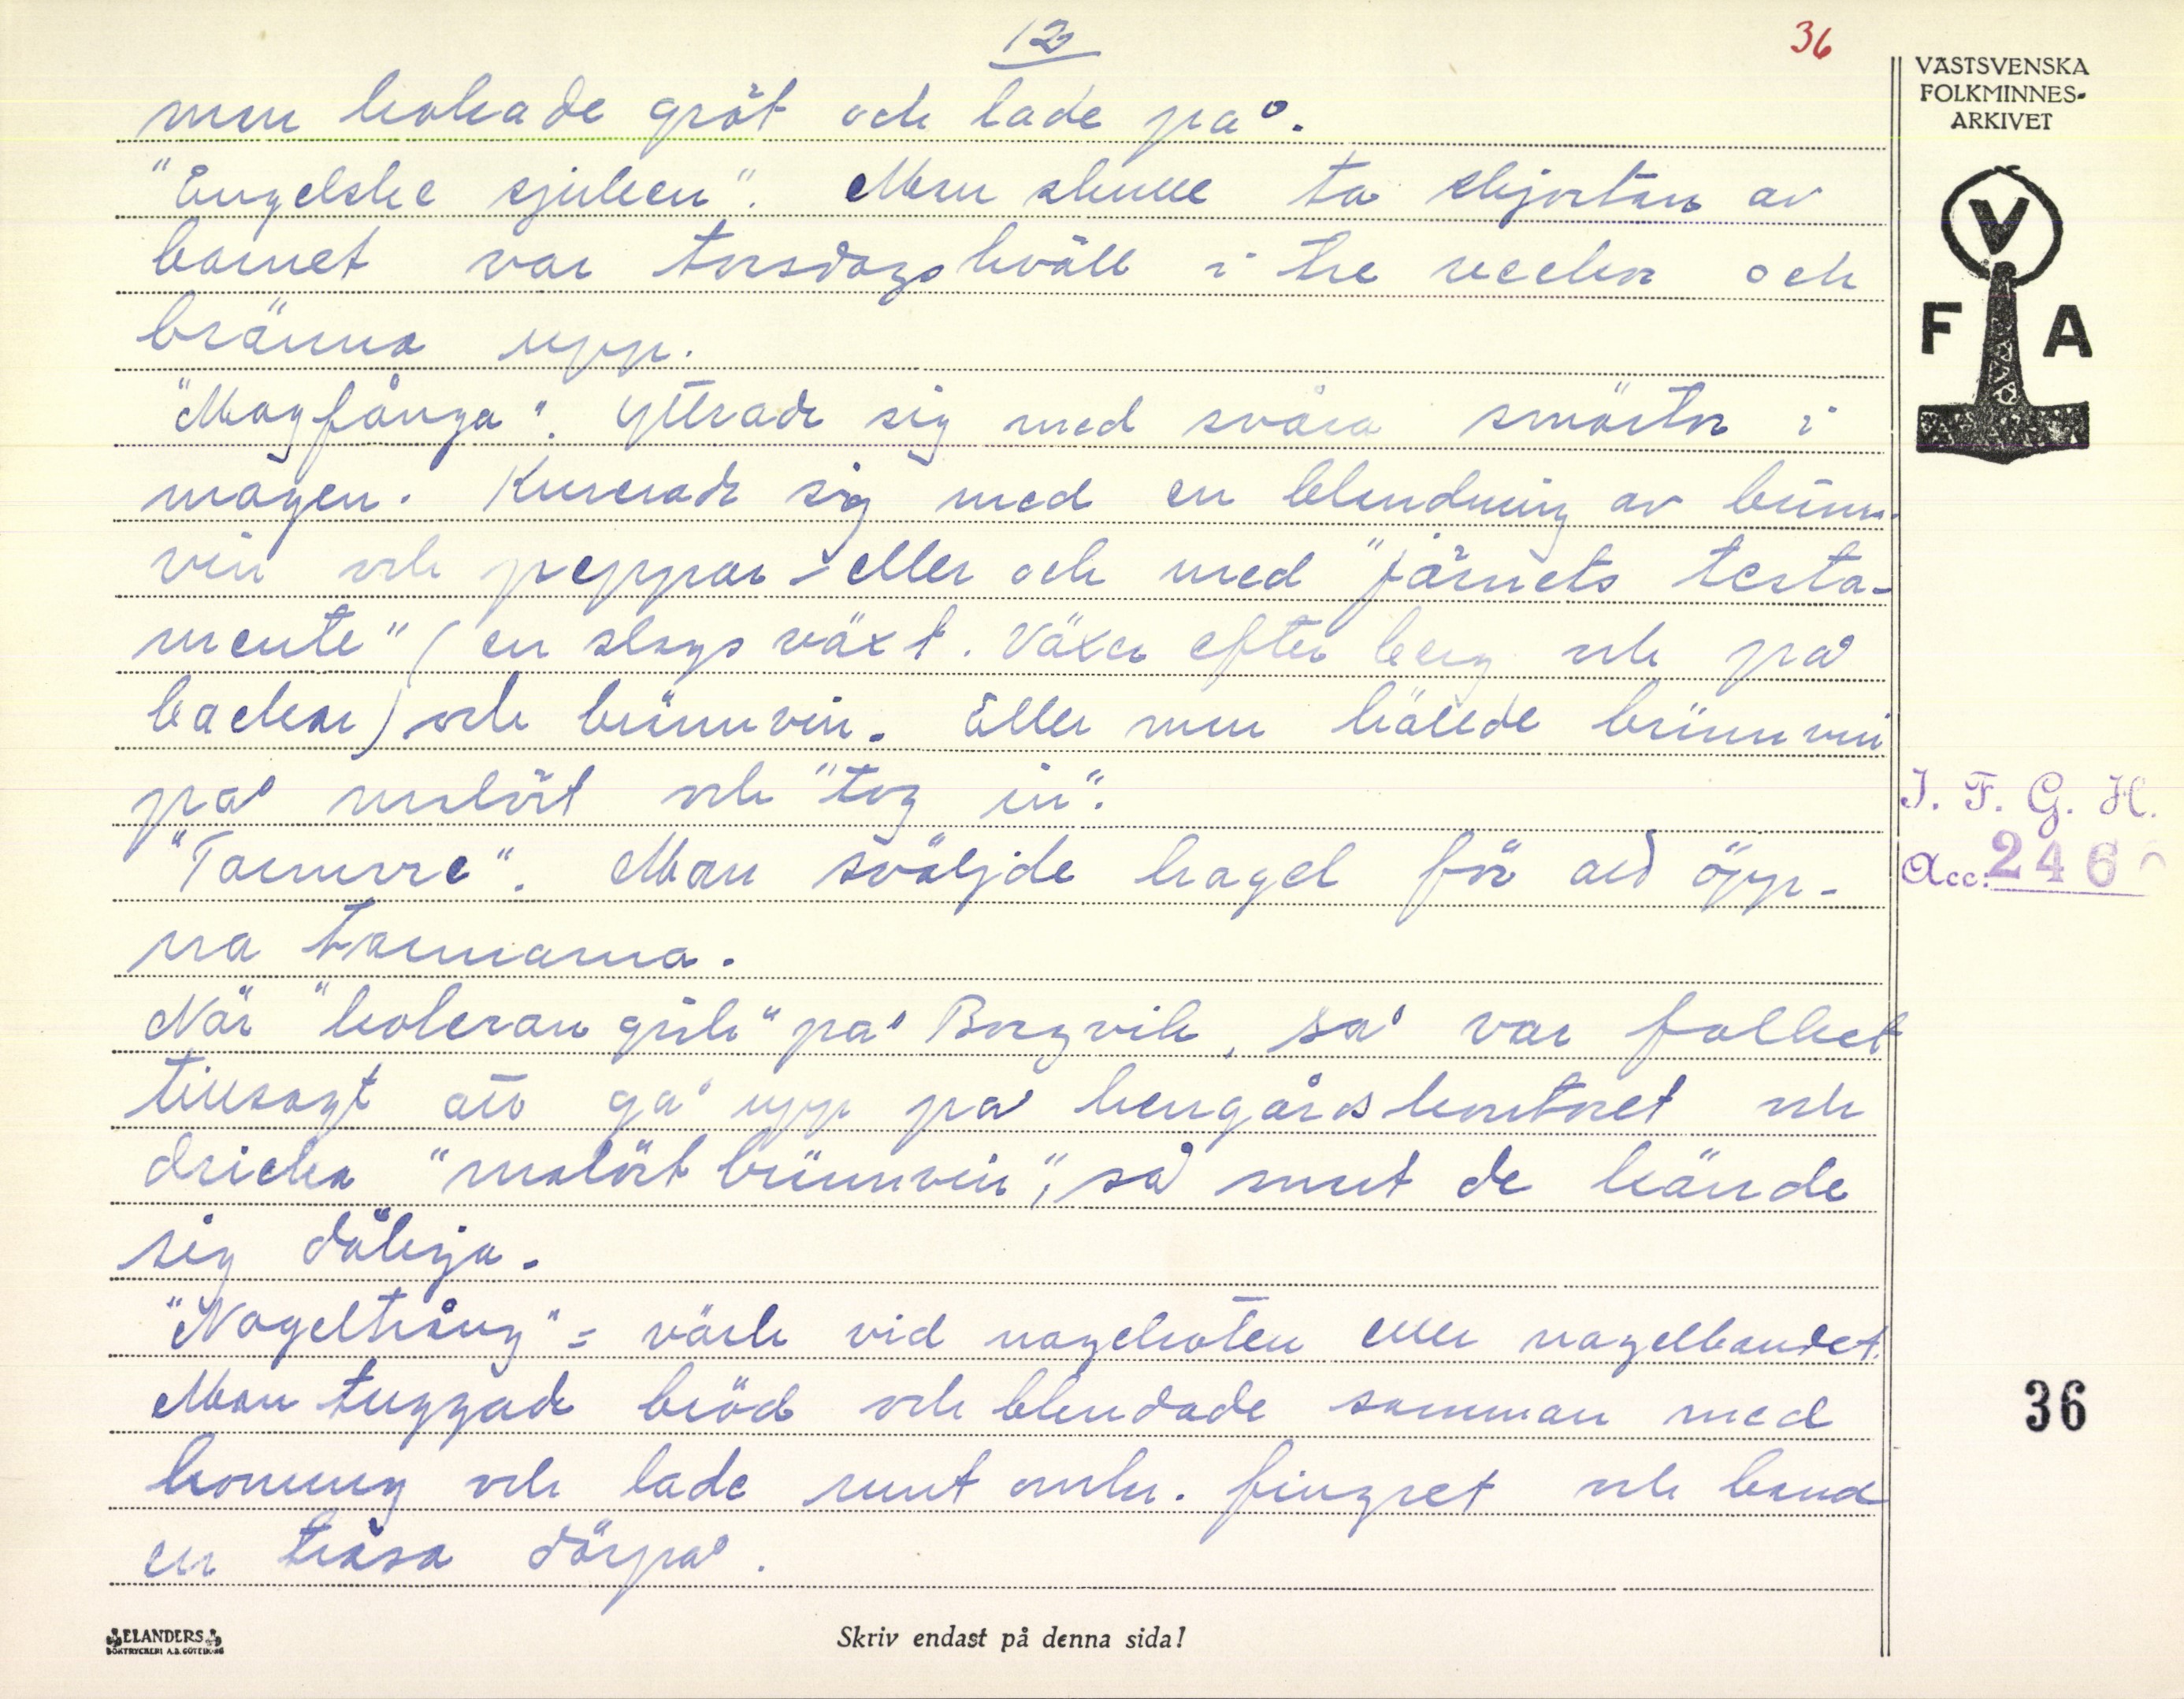 12
36
VÄSTSVENSKA
FOLKMINNES-
ARKIVET
V
F A
man kokade gröt och lade på.
"Engelske sjuken". Man skulle ta skjortan av
barnet var torsdagskväll i tre veckor och
bränna upp.
"Magfånga". Yttrade sig med svåra smärtor i
magen. Kurerade sig med en blandning av bränn-
vin och peppar - eller och med "järnets testa-
mente" (en slags växt. Växer efter berg och på
backar) och brännvin. Eller man hällde brännvin
på malört och "tog in".
"Tarmvre". Man sväljde hagel för att öpp-
na tarmarna.
När "koleran gick" på Borgvik, så var folket
tillsagt att gå upp på herrgårdskontoret och
dricka "malörtbrännvin", så snart de kände
sig dåliga.
"Nageltrång" = värk vid nagelroten eller nagelbandet.
Man tuggade bröd och blandade samman med
honung och lade runt omkr. fingret och band
en trasa därpå.
I. F. G. H.
Acc. 246
36
ELANDERS
BOKTRYCKERI A.B. GÖTEBORG
Skriv endast på denna sida!